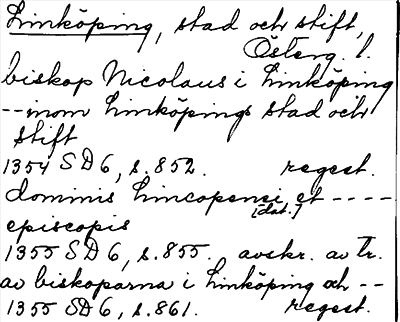 Linköping, stad och stift,
Österg l.
biskop Nicolaus i Linköping
-- inom Linköpings stad och
stift
1354 SD 6, s. 852. regest.
dominis Lincopensi et ----
[dat.]
episcopis
1355 SD 6, s. 855. avskr. av tr.
av biskoparna i Linköping och --
1355 SD 6, s. 861. regest.